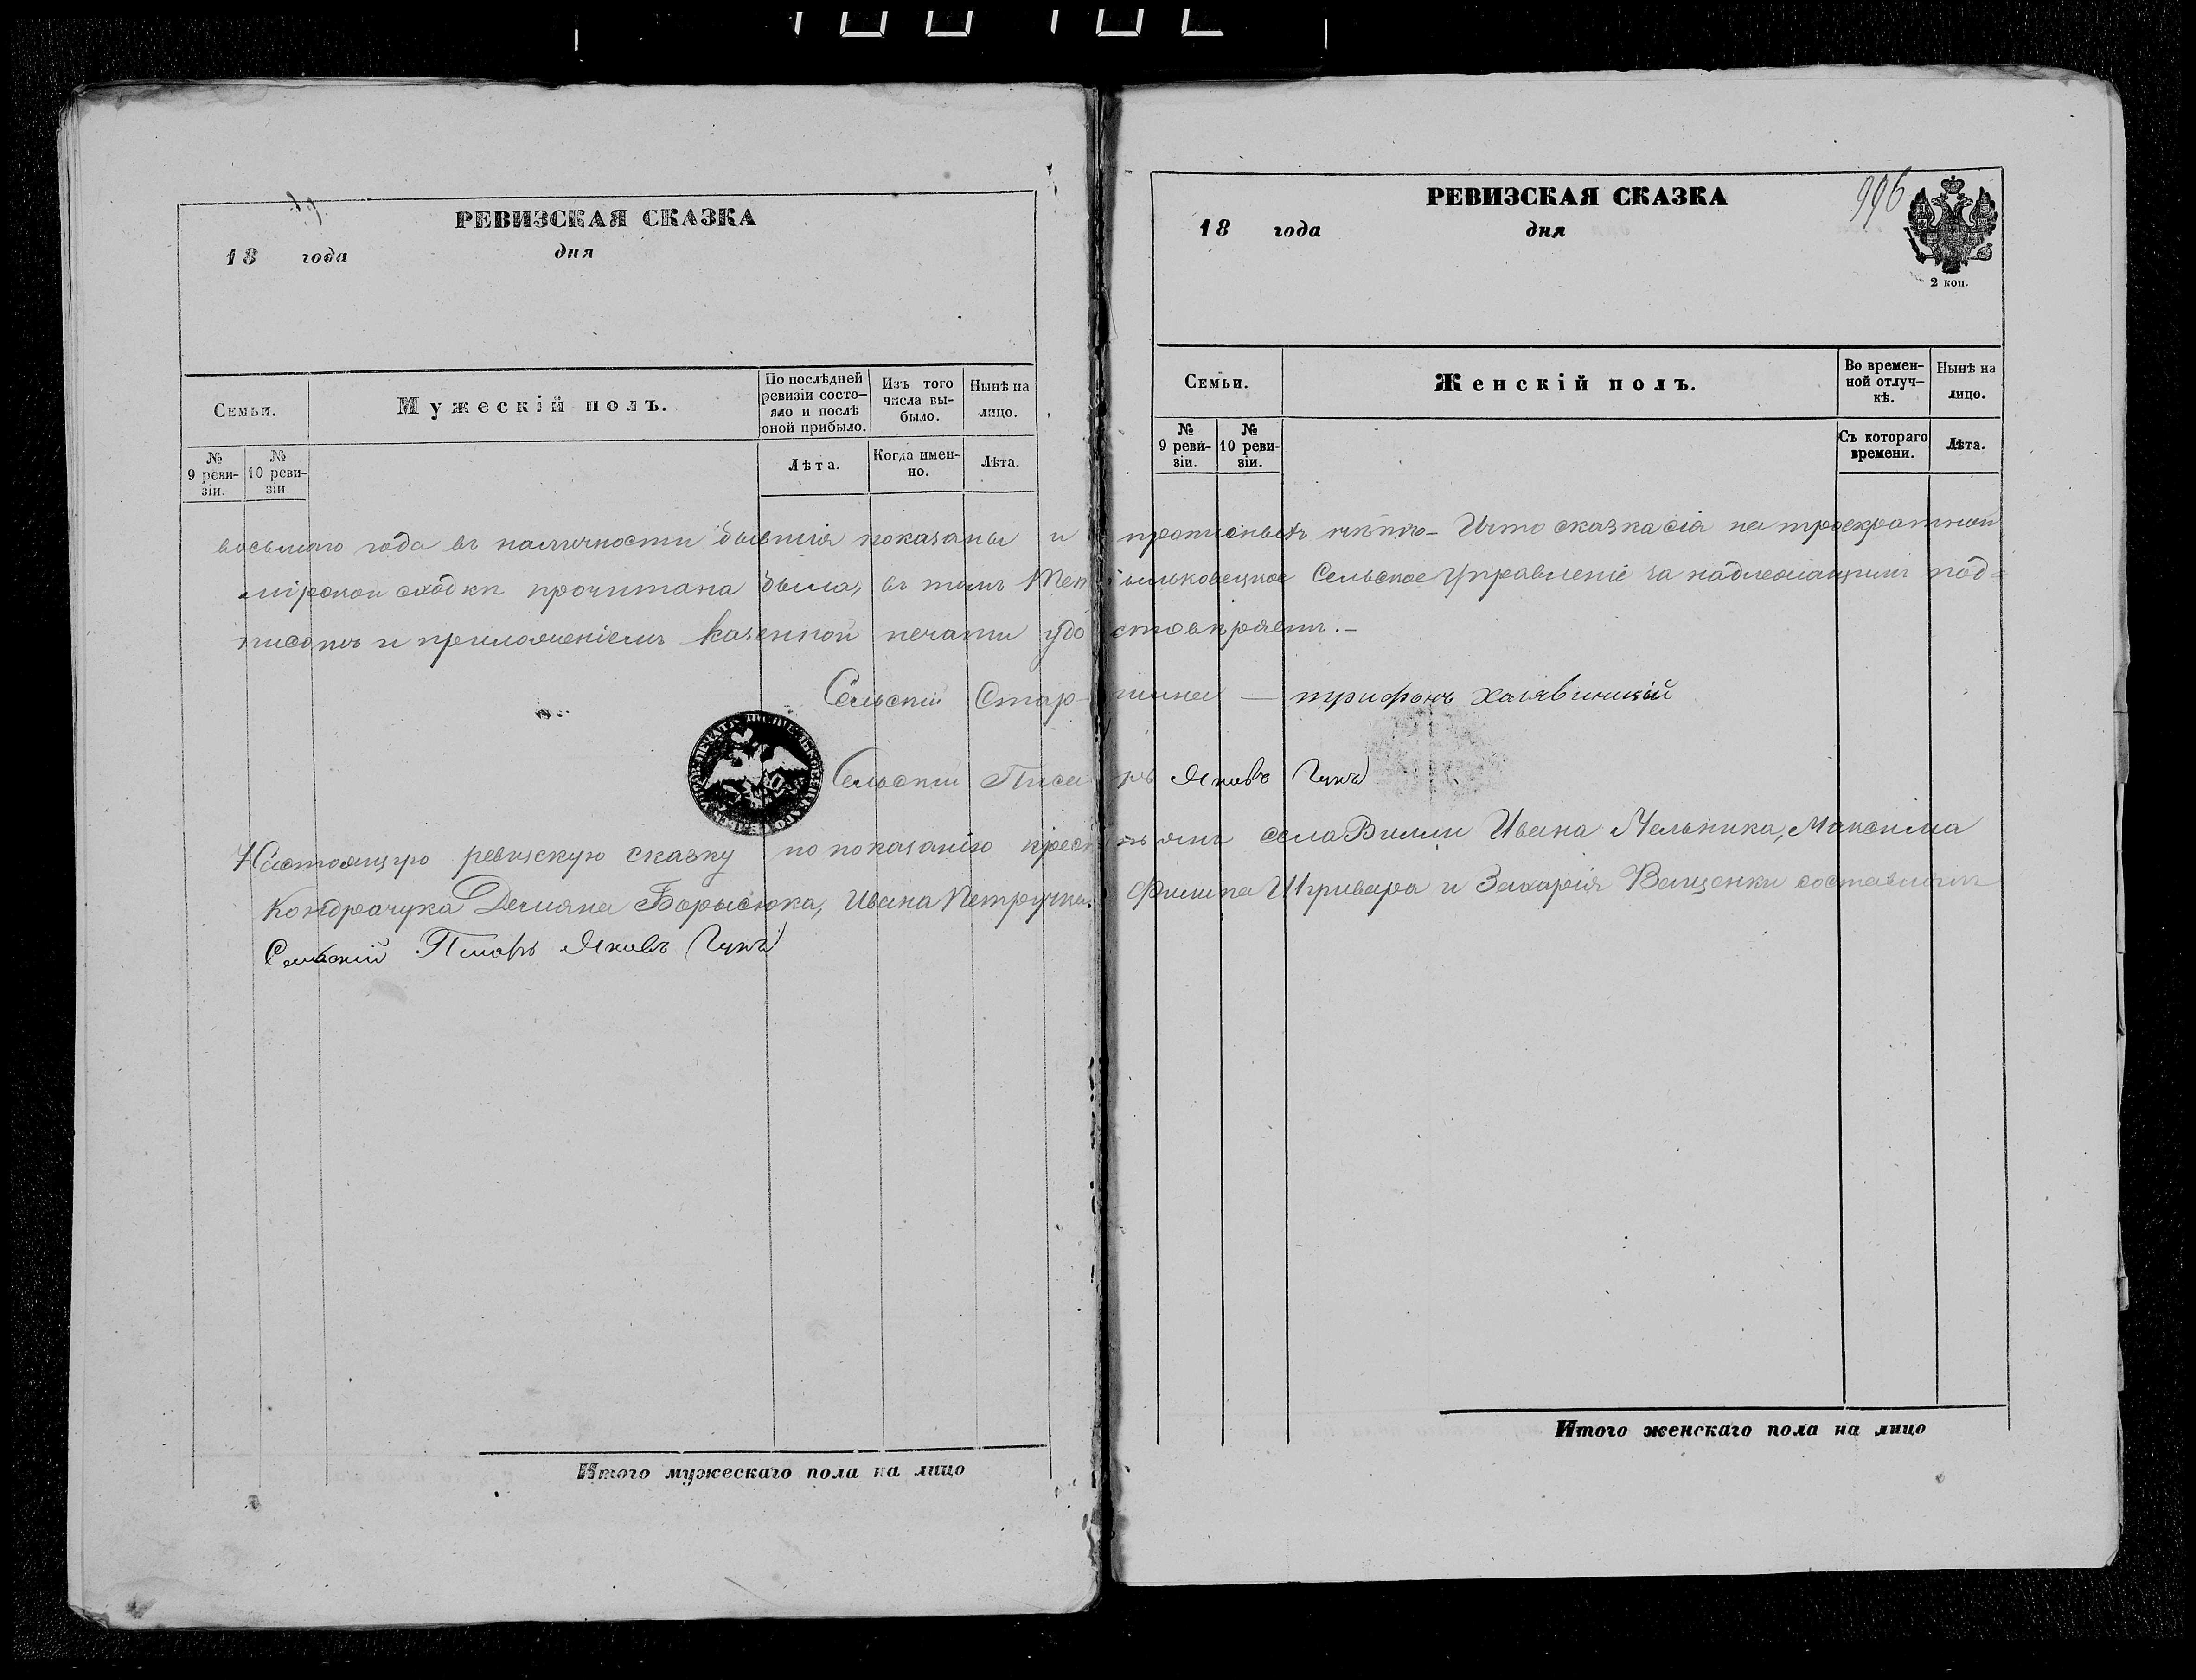 РЕВИЗСКАЯ СКАЗКА
18 года дня
Семьи.
Мужескій полъ.
По послѣдней ревизіи состояло и послѣ оной прибыло.
Изъ того числа выбыло.
Нынѣ на лицо.
№ 9 ревизіи.
№ 10 ревизіи.
Лѣта.
Когда именно.
Лѣта.
РЕВИЗСКАЯ СКАЗКА
996
18 года дня
2 коп.
Семьи.
Женскій полъ.
Во временной отлучкѣ.
Нынѣ на лицо.
№ 9 ревизіи.
№ 10 ревизіи.
Съ котораго времени.
Лѣта.
восьмаго года въ наличности бывшія показаны и прописныхъ нѣтъ – Что сказка сія на троекратной
мірской сходкѣ прочитана была, въ томъ Сельское Управленіе за надлежащимъ под=
писомъ и приложеніемъ казенной печати удостовѣряетъ. –
Сельскій Старшина — трифонъ
Сельскій Писарь Яковъ Гукъ
Настоящую ревизскую сказку по показанію крестьянъ села Вилли Ивана Мельника, Максима
Кондрачука Демяна Борысюка, Ивана Петручка Филипа и Захарія Ващенки составилъ
Сельскій Писарь Яковъ Гукъ
Итого мужескаго пола на лицо
Итого женскаго пола на лицо